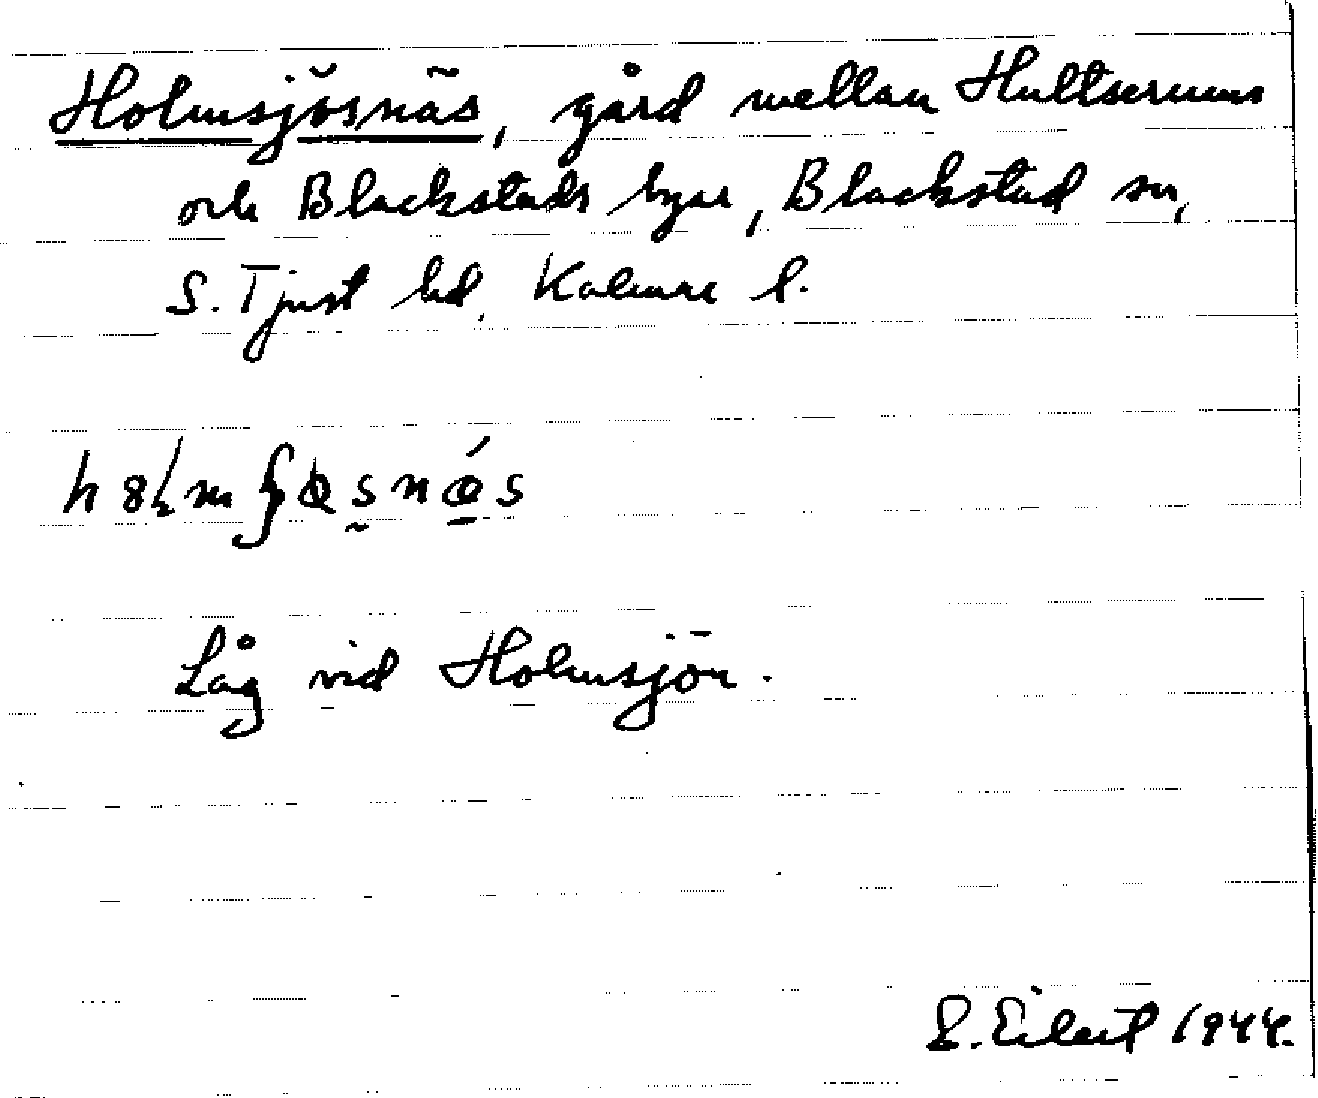 Holmsjösnäs, gård mellan Hultserums
och Blackstads byar, Blackstad sn,
S. Tjust hd, Kalmar l.
Låg vid Holmsjön.
E. Eilert 1944.